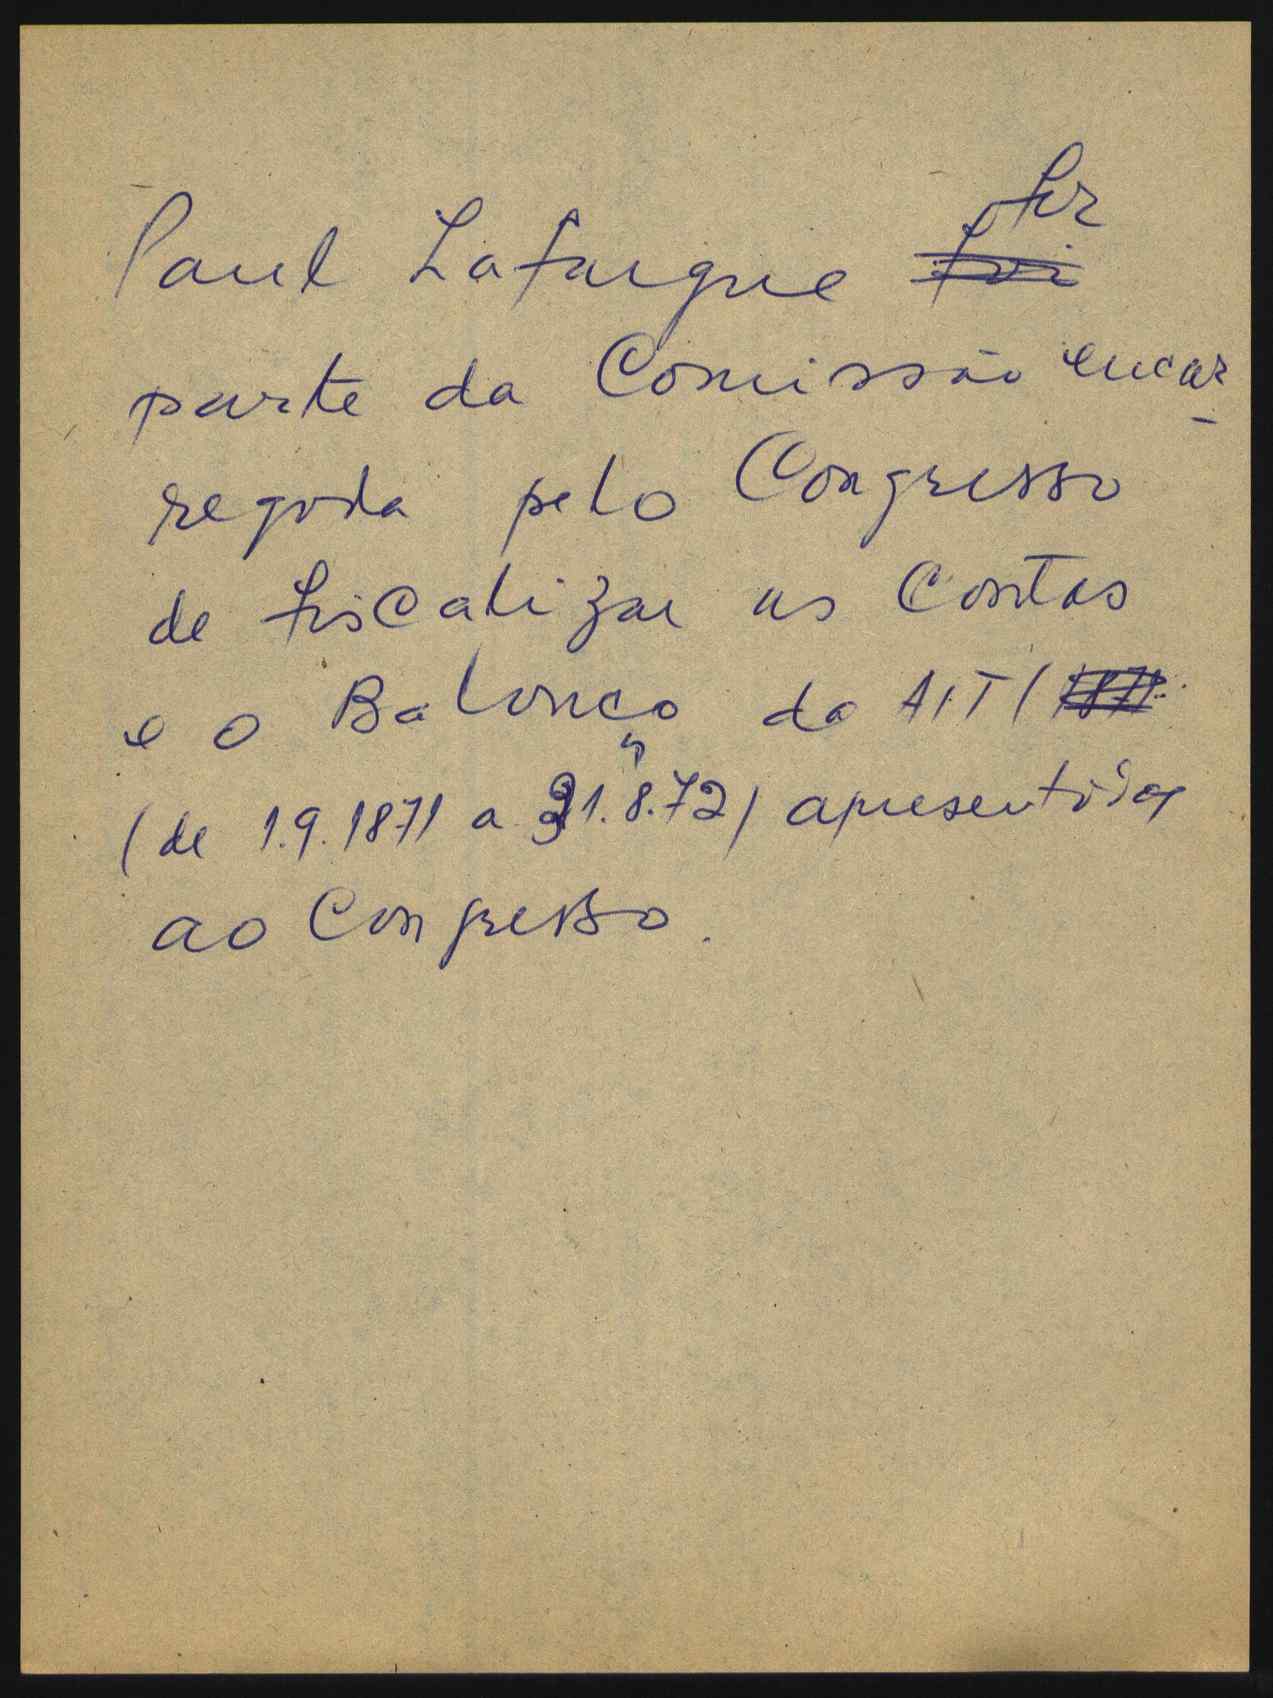 Paul Lafargue fez
parte da Comissão encar-
regada pelo Congresso
de fiscalizar as Contas
e o Balanço da AIT (
(de 1.9.1871 a 31.8.72) apresentados
ao Congresso.